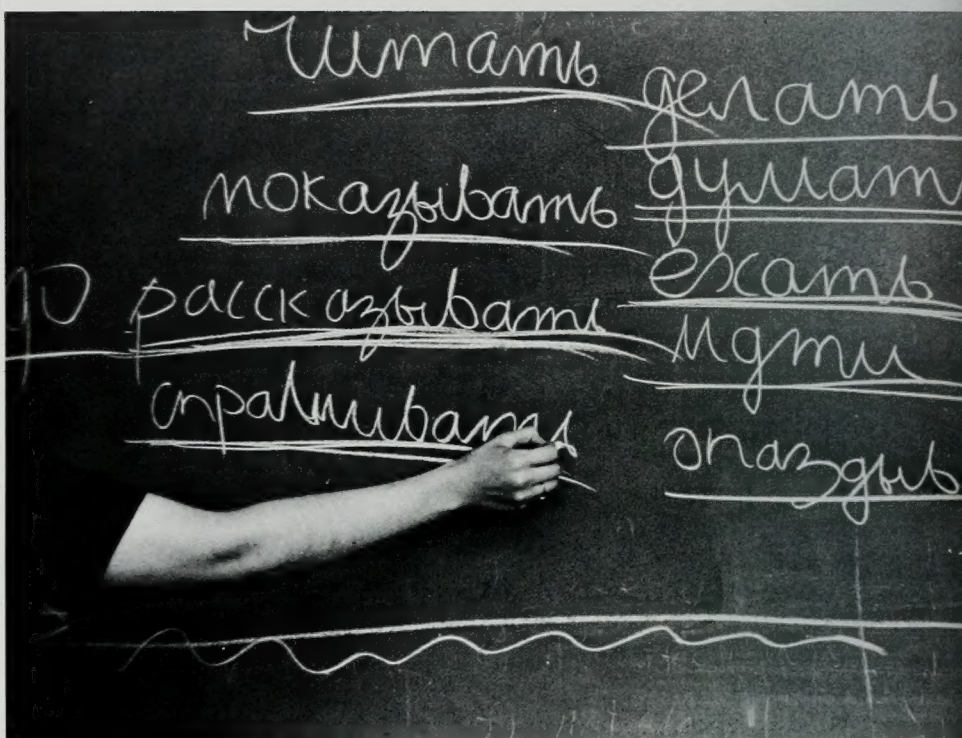 Читать
показывать
рассказывать
спрашивать
делать
думат
ехать
идти
опаздыв